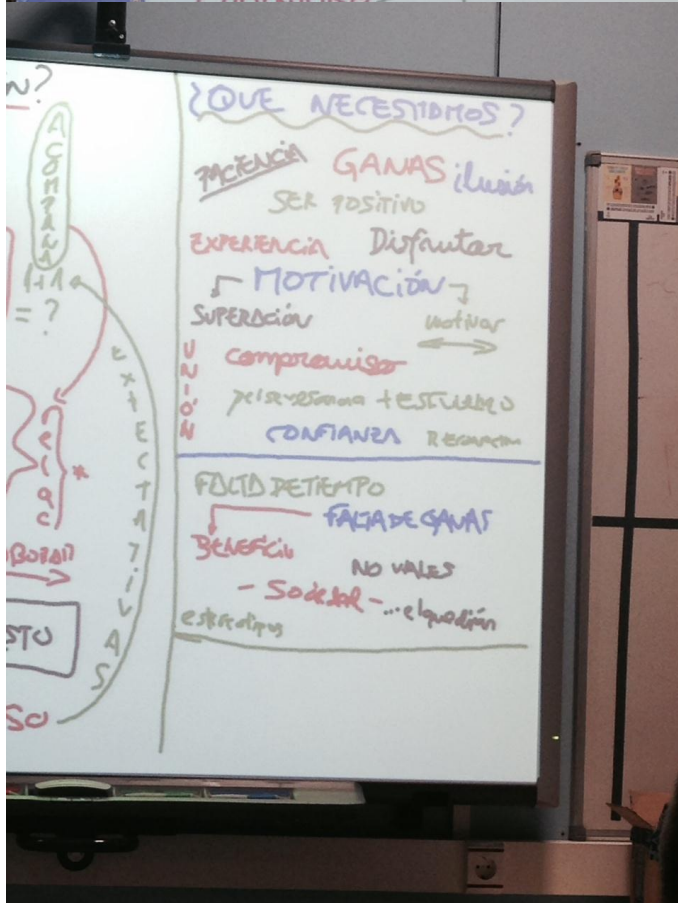 ACOMPAÑA
1+1
= ?
EXPECTATIVAS
¿QUE NECESITAMOS?
PACIENCIA GANAS ilusión
SER POSITIVO
EXPERIENCIA Disfrutar
MOTIVACIÓN
SUPERACIÓN motivar
UNIÓN
compromiso
perseverancia + ESFUERZO
CONFIANZA
FALTA DE TIEMPO
FALTA DE GANAS
BENEFICIO
NO VALES
- Sociedad - ...el que dirán
estereotipos